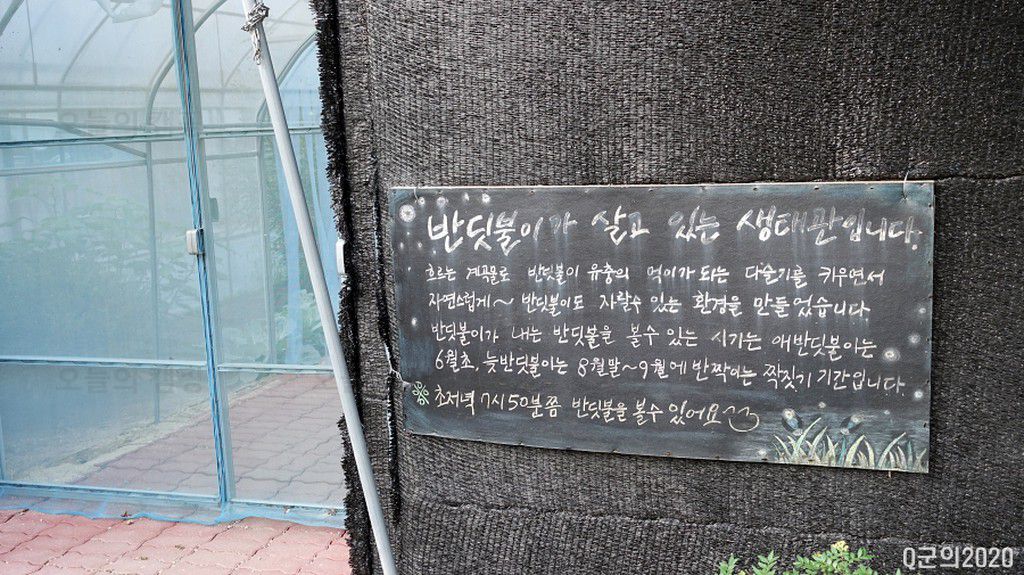 반딧불이가 살고 있는 생태관입니다.
흐르는 계곡물로 반딧불이 유충의 먹이가 되는 다슬기를 키우면서
자연스럽게~ 반딧불이도 자랄수 있는 환경을 만들었습니다
반딧불이가 내는 반딧불을 볼수 있는 시기는 애반딧불이는
6월초, 늦반딧불이는 8월말~9월에 반짝이는 짝짓기 기간입니다.
초저녁 7시50분쯤 반딧불을 볼수 있어요
Q군의2020